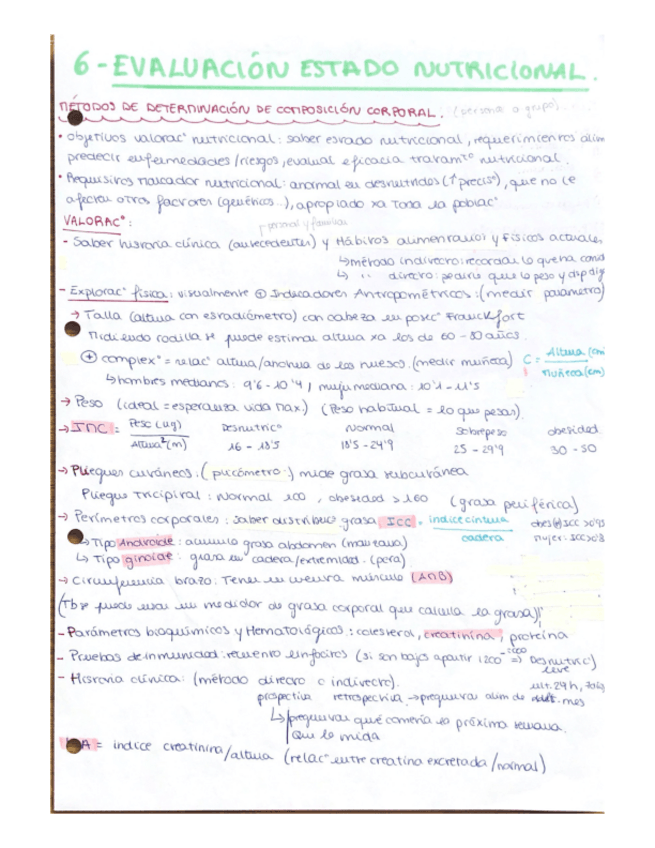 6-EVALUACIÓN ESTADO NUTRICIONAL.
MÉTODOS DE DETERMINACIÓN DE COMPOSICIÓN CORPORAL. (persona o grupo)
• Objetivos valorac° nutricional: saber estado nutricional, requerimientos alim
predecir enfermedades/riesgos, evaluar eficacia tratamto nutricional.
• Requisitos marcador nutricional: anormal en desnutridos (↑preciso), que no le
afecten otros factores (genéticos..), apropiado xa toda la poblac°
VALORAC°: personal y familiar
- Saber historia clínica (antecedentes) y Hábitos alimentarios y físicos actuales
↳método indirecto: recordar lo que ha comid
↳ " directo: pedirle que lo pese y dp dig
- Explorac° física: visualmente ⊕ Indicadores Antropométricos: (medir parámetro)
→ Talla (altura con estadiómetro) con cabeza en posic° Franckfort
Midiendo rodilla se puede estimar altura xa los de 60-80 años.
⊕ complex° = relac° altura/anchura de los huesos. (medir muñeca) C = Altura (cm) / muñeca (cm)
↳hombres medianos: 9'6-10'4 / mujer mediana: 10'1-11'5
→ Peso (ideal = esperanza vida max.) (Peso habitual = lo que pesas).
→ IMC = Peso (kg) / Altura² (m) Desnutric° 16-18'5 Normal 18'5-24'9 Sobrepeso 25-29'9 obesidad 30-50
→ Pliegues cutáneos. (plicómetro) mide grasa subcutánea
Pliegue tricipital: Normal 100, obesidad > 160 (grasa periférica)
→ Perímetros corporales: saber distribuc° grasa ICC = indice cintura / cadera
↳Tipo Androide: acumulo grasa abdomen (manzana)
↳ Tipo ginoide: grasa en cadera/extremidad. (pera)
→ Circunferencia brazo: Tener en cuenta músculo (AMB)
(Tb se puede usar un medidor de grasa corporal que calcula la grasa)
- Parámetros bioquímicos y Hematológicos: colesterol, creatinina, proteína
- Pruebas de inmunidad: recuento linfocitos (si son bajos a partir 1200 => Desnutric) leve
- Historia clínica: (método directo o indirecto). ult. 24h,
prospectiva retrospectiva → preguntar alim de mes
↳preguntar qué comería la próxima semana.
que lo mida
= indice creatinina/altura (relac° entre creatina excretada/normal)